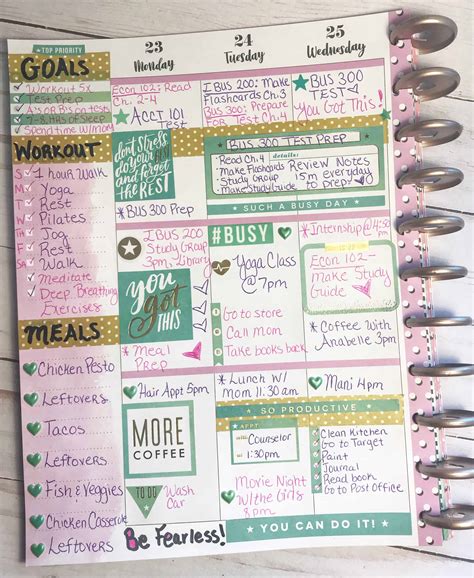 TOP PRIORITY
GOALS
Workout 5x
Test Prep
A's or B's on tests
7-8 HRS of Sleep
Spend time w/mom
WORKOUT
1 hour Walk
Yoga
Rest
Pilates
Jog
Rest
Walk
Meditate
Deep Breathing
Exercises
MEALS
Chicken Pesto
Leftovers
Tacos
Leftovers
Fish & Veggies
Chicken Casserole
Leftovers
23
Monday
Econ 102: Read
Ch. 2-4
ACCT 101
Test
don't stress
do your
best
and forget
the REST
*BUS 300 Prep
I BUS 200
Study Group
3pm, Library
you
got
THIS
*Meal
Prep
Hair Appt 5pm
MORE
COFFEE
TO DO
Wash
Car
Be Fearless!
24
Tuesday
I BUS 200: Make
Flashcards Ch. 3
BUS 300: Prepare
FOR Test Ch. 4
BUS 300 TEST PREP
details:
Read Ch. 4
Make Flashcards
Study Group
Make Study Guide
Review Notes
15m everyday
to prep
SUCH A BUSY DAY
#BUSY
Yoga Class
@7pm
Go to store
Call Mom
Take books back
*Lunch W/
Mom 11:30 am
SO PRODUCTIVE
APPT
Counselor
1:30pm
Movie Night
W/the Girls
8pm
25
Wednesday
BUS 300
TEST
You Got This!
*Internship
Econ 102-
Make Study
Guide
*Coffee With
Anabelle 3pm
Mani 4pm
Clean Kitchen
Go to Target
Paint
Journal
Read book
Go to Post Office
YOU CAN DO IT!